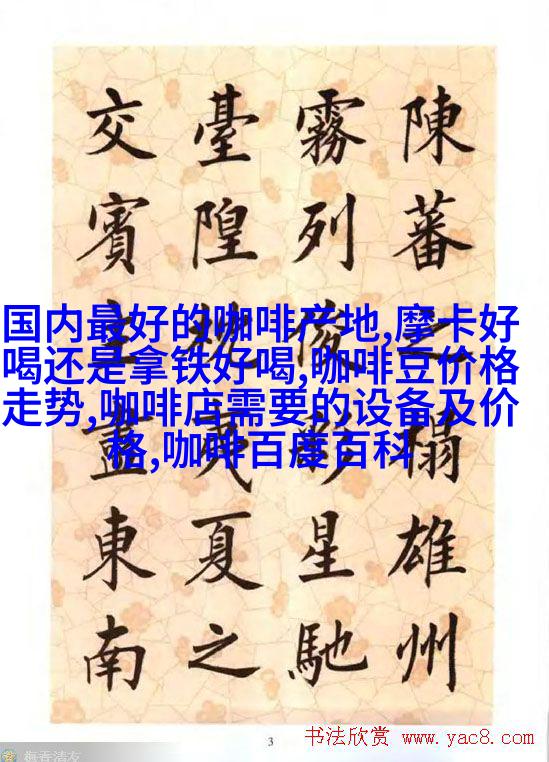 陳蕃之榻雄州
霧列俊彩星馳
臺隍枕夷夏之
交賓主盡東南
国内最好的咖啡产地,摩卡好
喝还是拿铁好喝,咖啡豆价格
走势,咖啡店需要的设备及价
格,咖啡百度百科
3
书法欣赏 www.yac8.com
梅香清友